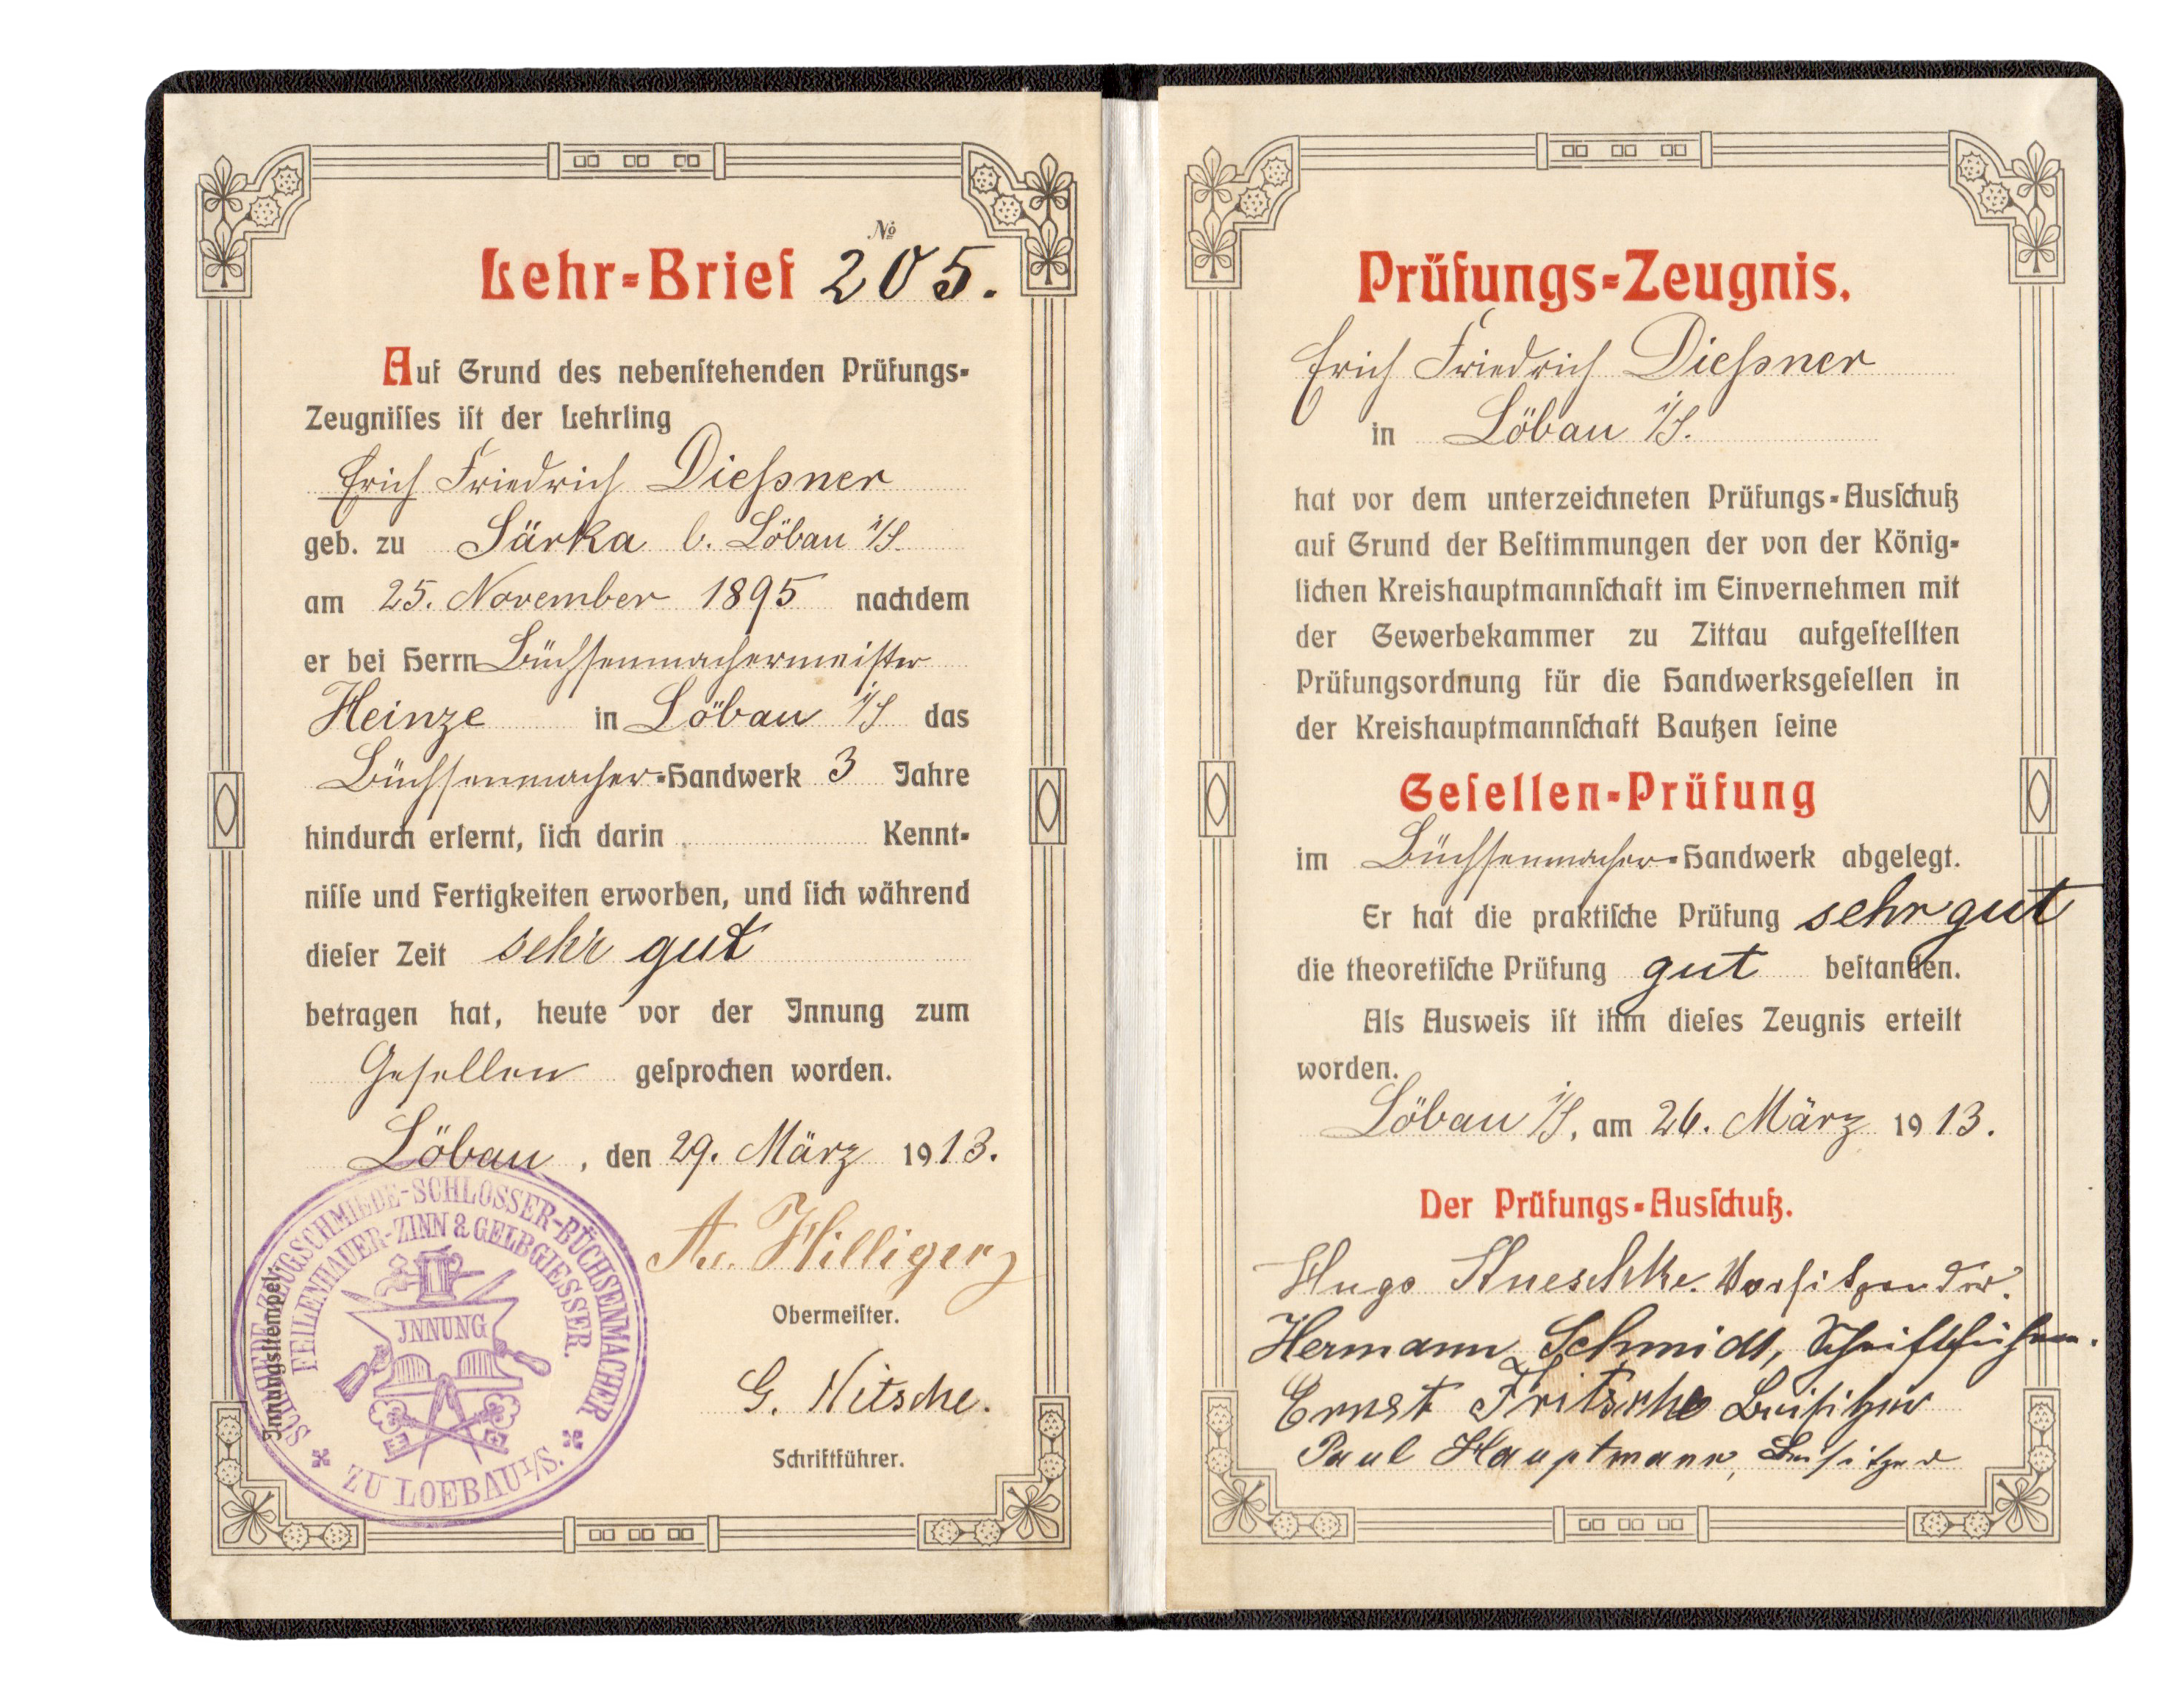 Lehr-Brief № 205.
Auf Grund des nebenſtehenden Prüfungs-
Zeugniſſes iſt der Lehrling
Erich Friedrich Dieſsner
geb. zu Särka b. Löbau i/S.
am 25. November 1895 nachdem
er bei Herrn Büchſenmachermeiſter
Heinze in Löbau i/S das
Büchſenmacher-Handwerk 3 Jahre
hindurch erlernt, ſich darin Kennt-
niſſe und Fertigkeiten erworben, und ſich während
dieſer Zeit sehr gut
betragen hat, heute vor der Innung zum
Geſellen geſprochen worden.
Löbau, den 29. März 1913.
Hilliger
Obermeiſter.
G. Nitsche.
Schriftführer.
Innungsſtempel.
SCHMIEDE-ZEUGSCHMIEDE-SCHLOSSER-BÜCHSENMACHER
FEILENHAUER-ZINN & GELBGIESSER.
INNUNG
ZU LOEBAU I/S.
Prüfungs-Zeugnis.
Erich Friedrich Dieſsner
in Löbau i/S.
hat vor dem unterzeichneten Prüfungs-Ausſchuß
auf Grund der Beſtimmungen der von der König-
lichen Kreishauptmannſchaft im Einvernehmen mit
der Gewerbekammer zu Zittau aufgeſtellten
Prüfungsordnung für die Handwerksgeſellen in
der Kreishauptmannſchaft Bautzen ſeine
Geſellen-Prüfung
im Büchſenmacher-Handwerk abgelegt.
Er hat die praktiſche Prüfung sehr gut
die theoretiſche Prüfung gut beſtanden.
Als Ausweis iſt ihm dieſes Zeugnis erteilt
worden.
Löbau i/S, am 26. März 1913.
Der Prüfungs-Ausſchuß.
Hugo Kneschke. Vorſitzender.
Hermann Schmidt, Schriftführer.
Ernst Fritsche Beiſitzer
Paul Hauptmann, Beiſitzer